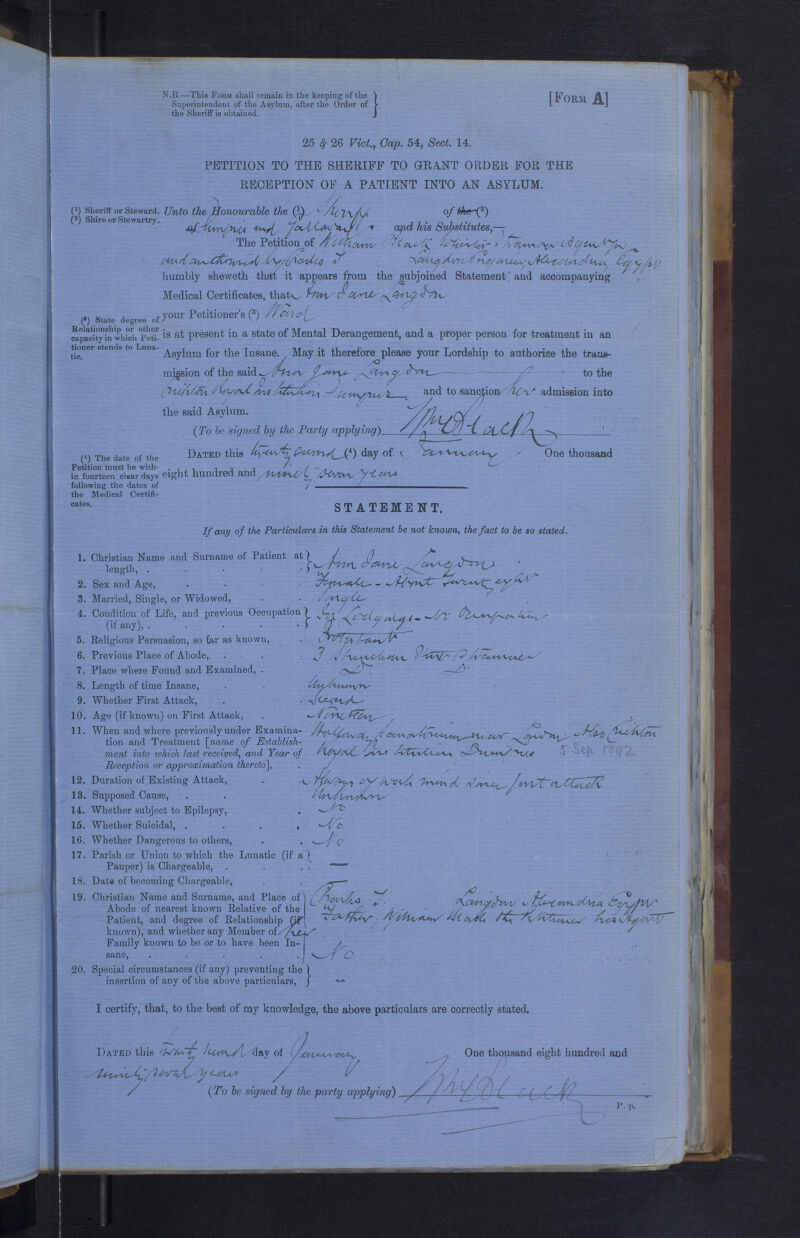 N.B.—This Form shall remain in the keeping of the
Superintendent of the Asylum, after the Order of
the Sheriff is obtained.
[Form A]
25 & 26 Vict., Cap. 54, Sect. 14.
PETITION TO THE SHERIFF TO GRANT ORDER FOR THE
RECEPTION OF A PATIENT INTO AN ASYLUM.
(1) Sheriff or Steward.
(2) Shire or Stewartry.
Unto the Honourable the (1) Sheriff of the (2)
of Dumfries and Galloway and his Substitutes,—
The Petition of William Black Agent for
and authorised by Charles T Langdon Engineer, Alexandria, Egypt
humbly sheweth that it appears from the subjoined Statement and accompanying
Medical Certificates, that Ann Jane Langdon
(3) State degree of
Relationship or other
capacity in which Peti-
tioner stands to Luna-
tic.
your Petitioner's (3) Ward
is at present in a state of Mental Derangement, and a proper person for treatment in an
Asylum for the Insane. May it therefore please your Lordship to authorize the trans-
mission of the said Ann Jane Langdon to the
Crichton Royal Institution Dumfries and to sanction her admission into
the said Asylum.
(To be signed by the Party applying) Wm Black
(4) The date of the
Petition must be with-
in fourteen clear days
following the dates of
the Medical Certifi-
cates.
Dated this twenty second (4) day of January One thousand
eight hundred and ninety seven years
STATEMENT.
If any of the Particulars in this Statement be not known, the fact to be so stated.
1. Christian Name and Surname of Patient at
length, . Ann Jane Langdon
2. Sex and Age, Female - About Twenty eight
3. Married, Single, or Widowed, Single
4. Condition of Life, and previous Occupation
(if any), . In Lodgings - No Occupation
5. Religious Persuasion, so far as known, Protestant
6. Previous Place of Abode, 3 Stranraer
7. Place where Found and Examined, . Do Do
8. Length of time Insane, Unknown
9. Whether First Attack, Second
10. Age (if known) on First Attack, Nineteen
11. When and where previously under Examina-
tion and Treatment [name of Establish-
ment into which last received, and Year of
Reception or approximation thereto],
Holloway Sanatorium near London Also Crichton
Royal Institution Dumfries 5 Sep 1892
12. Duration of Existing Attack, Always of weak mind since first attack
13. Supposed Cause, Unknown
14. Whether subject to Epilepsy, No
15. Whether Suicidal, . No
16. Whether Dangerous to others, No
17. Parish or Union to which the Lunatic (if a
Pauper) is Chargeable, . —
18. Date of becoming Chargeable,
19. Christian Name and Surname, and Place of
Abode of nearest known Relative of the
Patient, and degree of Relationship (if
known), and whether any Member of her
Family known to be or to have been In-
sane,
Charles T. Langdon Alexandria Egypt
Father. William Black the Petitioner his Agent
No
20. Special circumstances (if any) preventing the
insertion of any of the above particulars, —
I certify, that, to the best of my knowledge, the above particulars are correctly stated.
Dated this twenty second day of January One thousand eight hundred and
ninety seven years
(To be signed by the party applying) Wm Black
P. p.